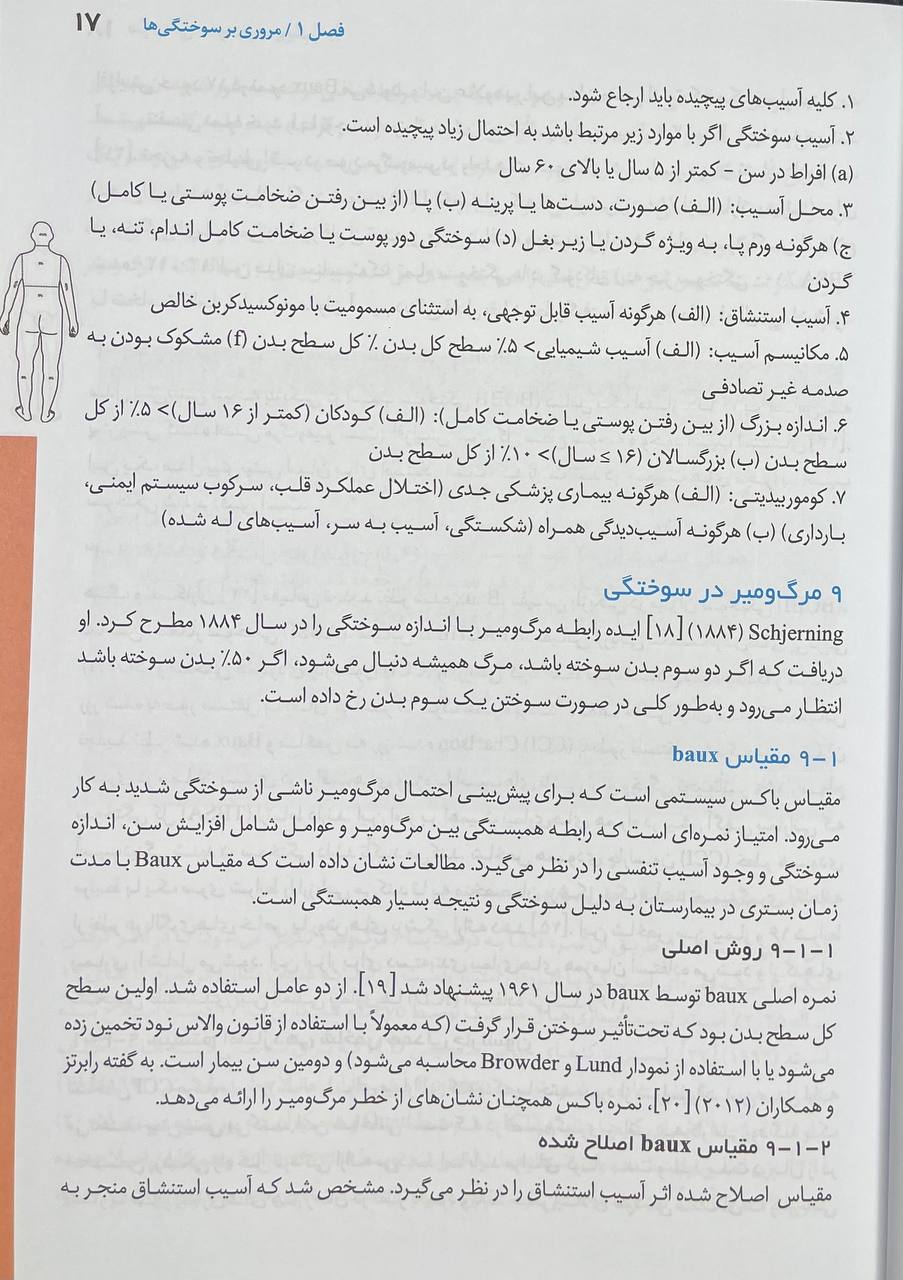 فصل ۱ / مروری بر سوختگی‌ها ۱۷
۱. کلیه آسیب‌های پیچیده باید ارجاع شود.
۲. آسیب سوختگی اگر با موارد زیر مرتبط باشد به احتمال زیاد پیچیده است.
(a) افراط در سن – کمتر از ۵ سال یا بالای ۶۰ سال
۳. محل آسیب: (الف) صورت، دست‌ها یا پرینه (ب) پا (از بین رفتن ضخامت پوستی یا کامل)
ج) هرگونه ورم پا، به ویژه گردن یا زیر بغل (د) سوختگی دور پوست یا ضخامت کامل اندام، تنه، یا
گردن
۴. آسیب استنشاق: (الف) هرگونه آسیب قابل توجهی، به استثنای مسمومیت با مونوکسیدکربن خالص
۵. مکانیسم آسیب: (الف) آسیب شیمیایی> ۵٪ سطح کل بدن ٪ کل سطح بدن (f) مشکوک بودن به
صدمه غیر تصادفی
۶. اندازه بزرگ (از بین رفتن پوستی یا ضخامت کامل): (الف) کودکان (کمتر از ۱۶ سال)> ۵٪ از کل
سطح بدن (ب) بزرگسالان (۱۶ ≥ سال)> ۱۰٪ از کل سطح بدن
۷. کوموربیدیتی: (الف) هرگونه بیماری پزشکی جدی (اختلال عملکرد قلب، سرکوب سیستم ایمنی،
بارداری) (ب) هرگونه آسیب‌دیدگی همراه (شکستگی، آسیب به سر، آسیب‌های له شده)
۹ مرگ‌ومیر در سوختگی
Schjerning (۱۸۸۴) [۱۸] ایده رابطه مرگ‌ومیر با اندازه سوختگی را در سال ۱۸۸۴ مطرح کرد. او
دریافت که اگر دو سوم بدن سوخته باشد، مرگ همیشه دنبال می‌شود، اگر ۵۰٪ بدن سوخته باشد
انتظار می‌رود و به‌طور کلی در صورت سوختن یک سوم بدن رخ داده است.
۹-۱ مقیاس baux
مقیاس باکس سیستمی است که برای پیش‌بینی احتمال مرگ‌ومیر ناشی از سوختگی شدید به کار
می‌رود. امتیاز نمره‌ای است که رابطه همبستگی بین مرگ‌ومیر و عوامل شامل افزایش سن، اندازه
سوختگی و وجود آسیب تنفسی را در نظر می‌گیرد. مطالعات نشان داده است که مقیاس Baux با مدت
زمان بستری در بیمارستان به دلیل سوختگی و نتیجه بسیار همبستگی است.
۹-۱-۱ روش اصلی
نمره اصلی baux توسط baux در سال ۱۹۶۱ پیشنهاد شد [۱۹]. از دو عامل استفاده شد. اولین سطح
کل سطح بدن بود که تحت‌تأثیر سوختن قرار گرفت (که معمولاً با استفاده از قانون والاس نود تخمین زده
می‌شود یا با استفاده از نمودار Lund و Browder محاسبه می‌شود) و دومین سن بیمار است. به گفته رابرتز
و همکاران (۲۰۱۲) [۲۰]، نمره باکس همچنان نشان‌های از خطر مرگ‌ومیر را ارائه می‌دهد.
۹-۱-۲ مقیاس baux اصلاح شده
مقیاس اصلاح شده اثر آسیب استنشاق را در نظر می‌گیرد. مشخص شد که آسیب استنشاق منجر به